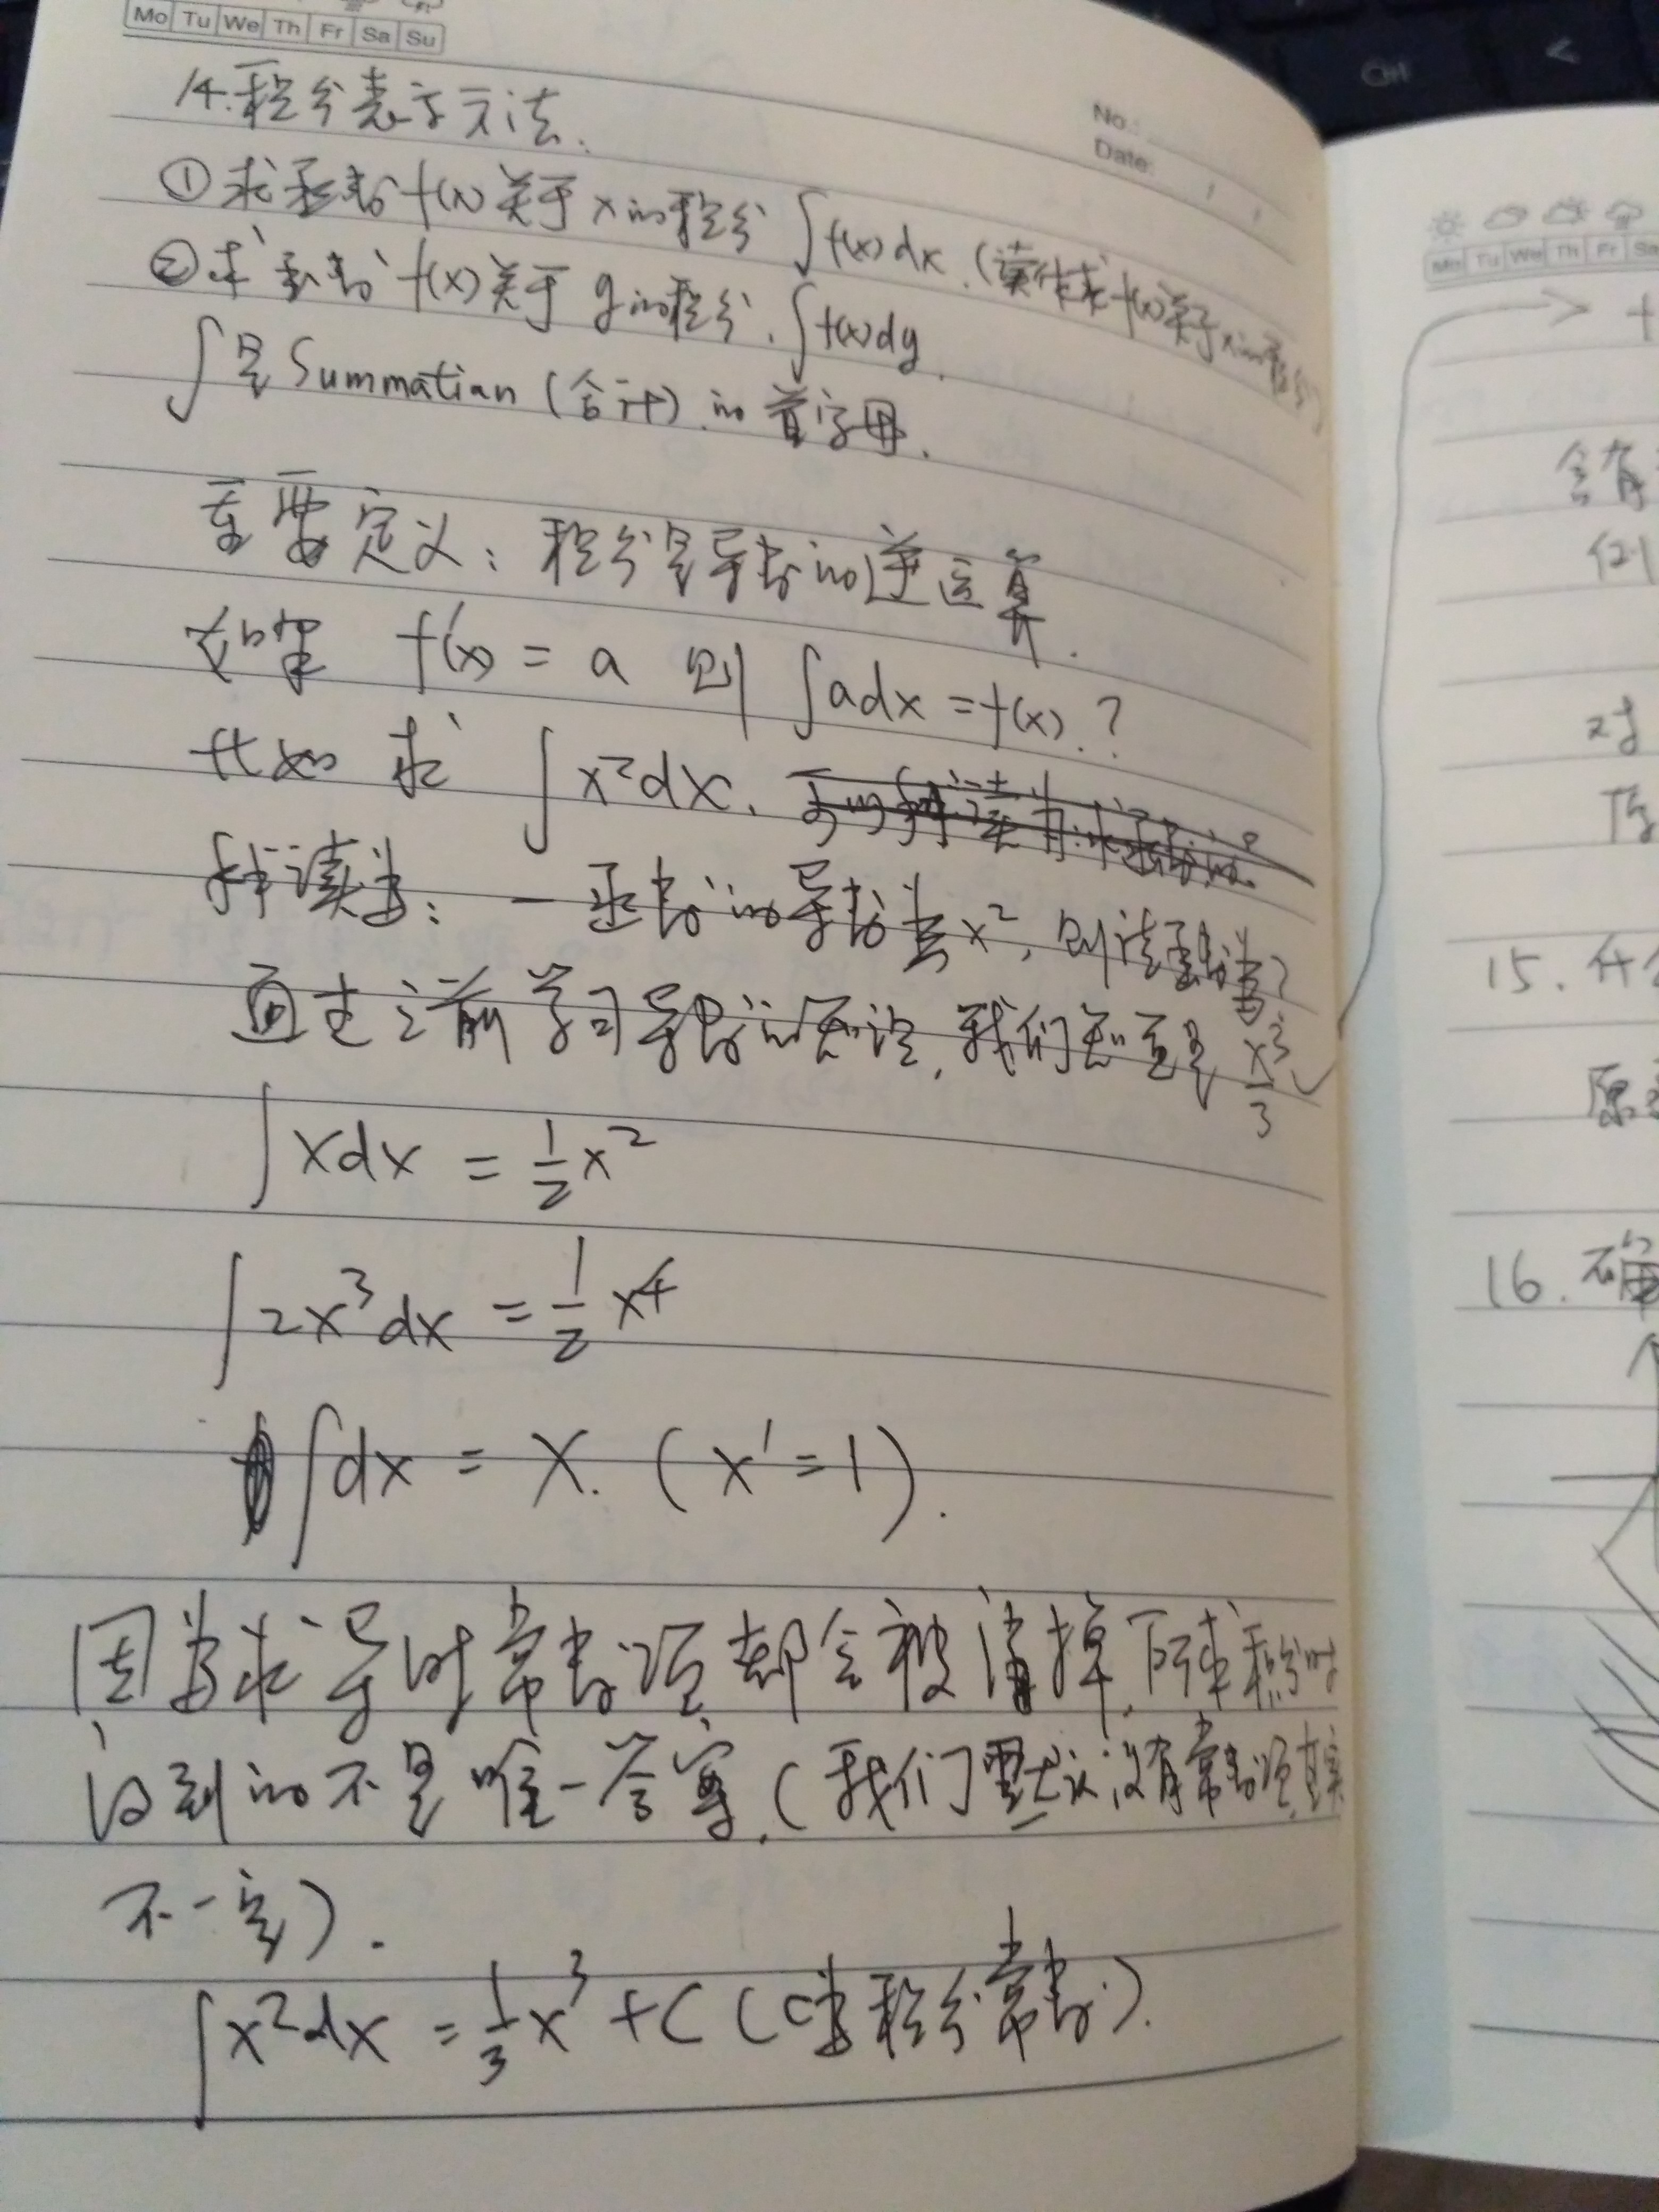 Mo Tu We Th Fr Sa Su
No.:
Date:
14.积分表示方法.
①求函数f(x)关于x的积分 ∫f(x)dx.(读作求f(x)关于x的积分)
②求函数f(x)关于g的积分.∫f(x)dg.
∫是Summatian(合计)的首字母.
重要定义:积分是导数的逆运算.
如果 f'(x) = a 则 ∫adx = f(x).?
比如 求 ∫x²dx.
解读为:一函数的导数为x²,则该函数为?
通过之前学习导数的知识,我们知道是 x³/3
∫xdx = 1/2 x²
∫2x³dx = 1/2 x⁴
∫dx = x. (x' = 1).
因为求导时常数项都会被消掉,所求积分时
得到的不是唯一答案.(我们默认没有常数项,其实
不一定).
∫x²dx = 1/3 x³ + C (C为积分常数).
Mo Tu We Th Fr Sa
含有
例
对
15. 什
原
16. 确